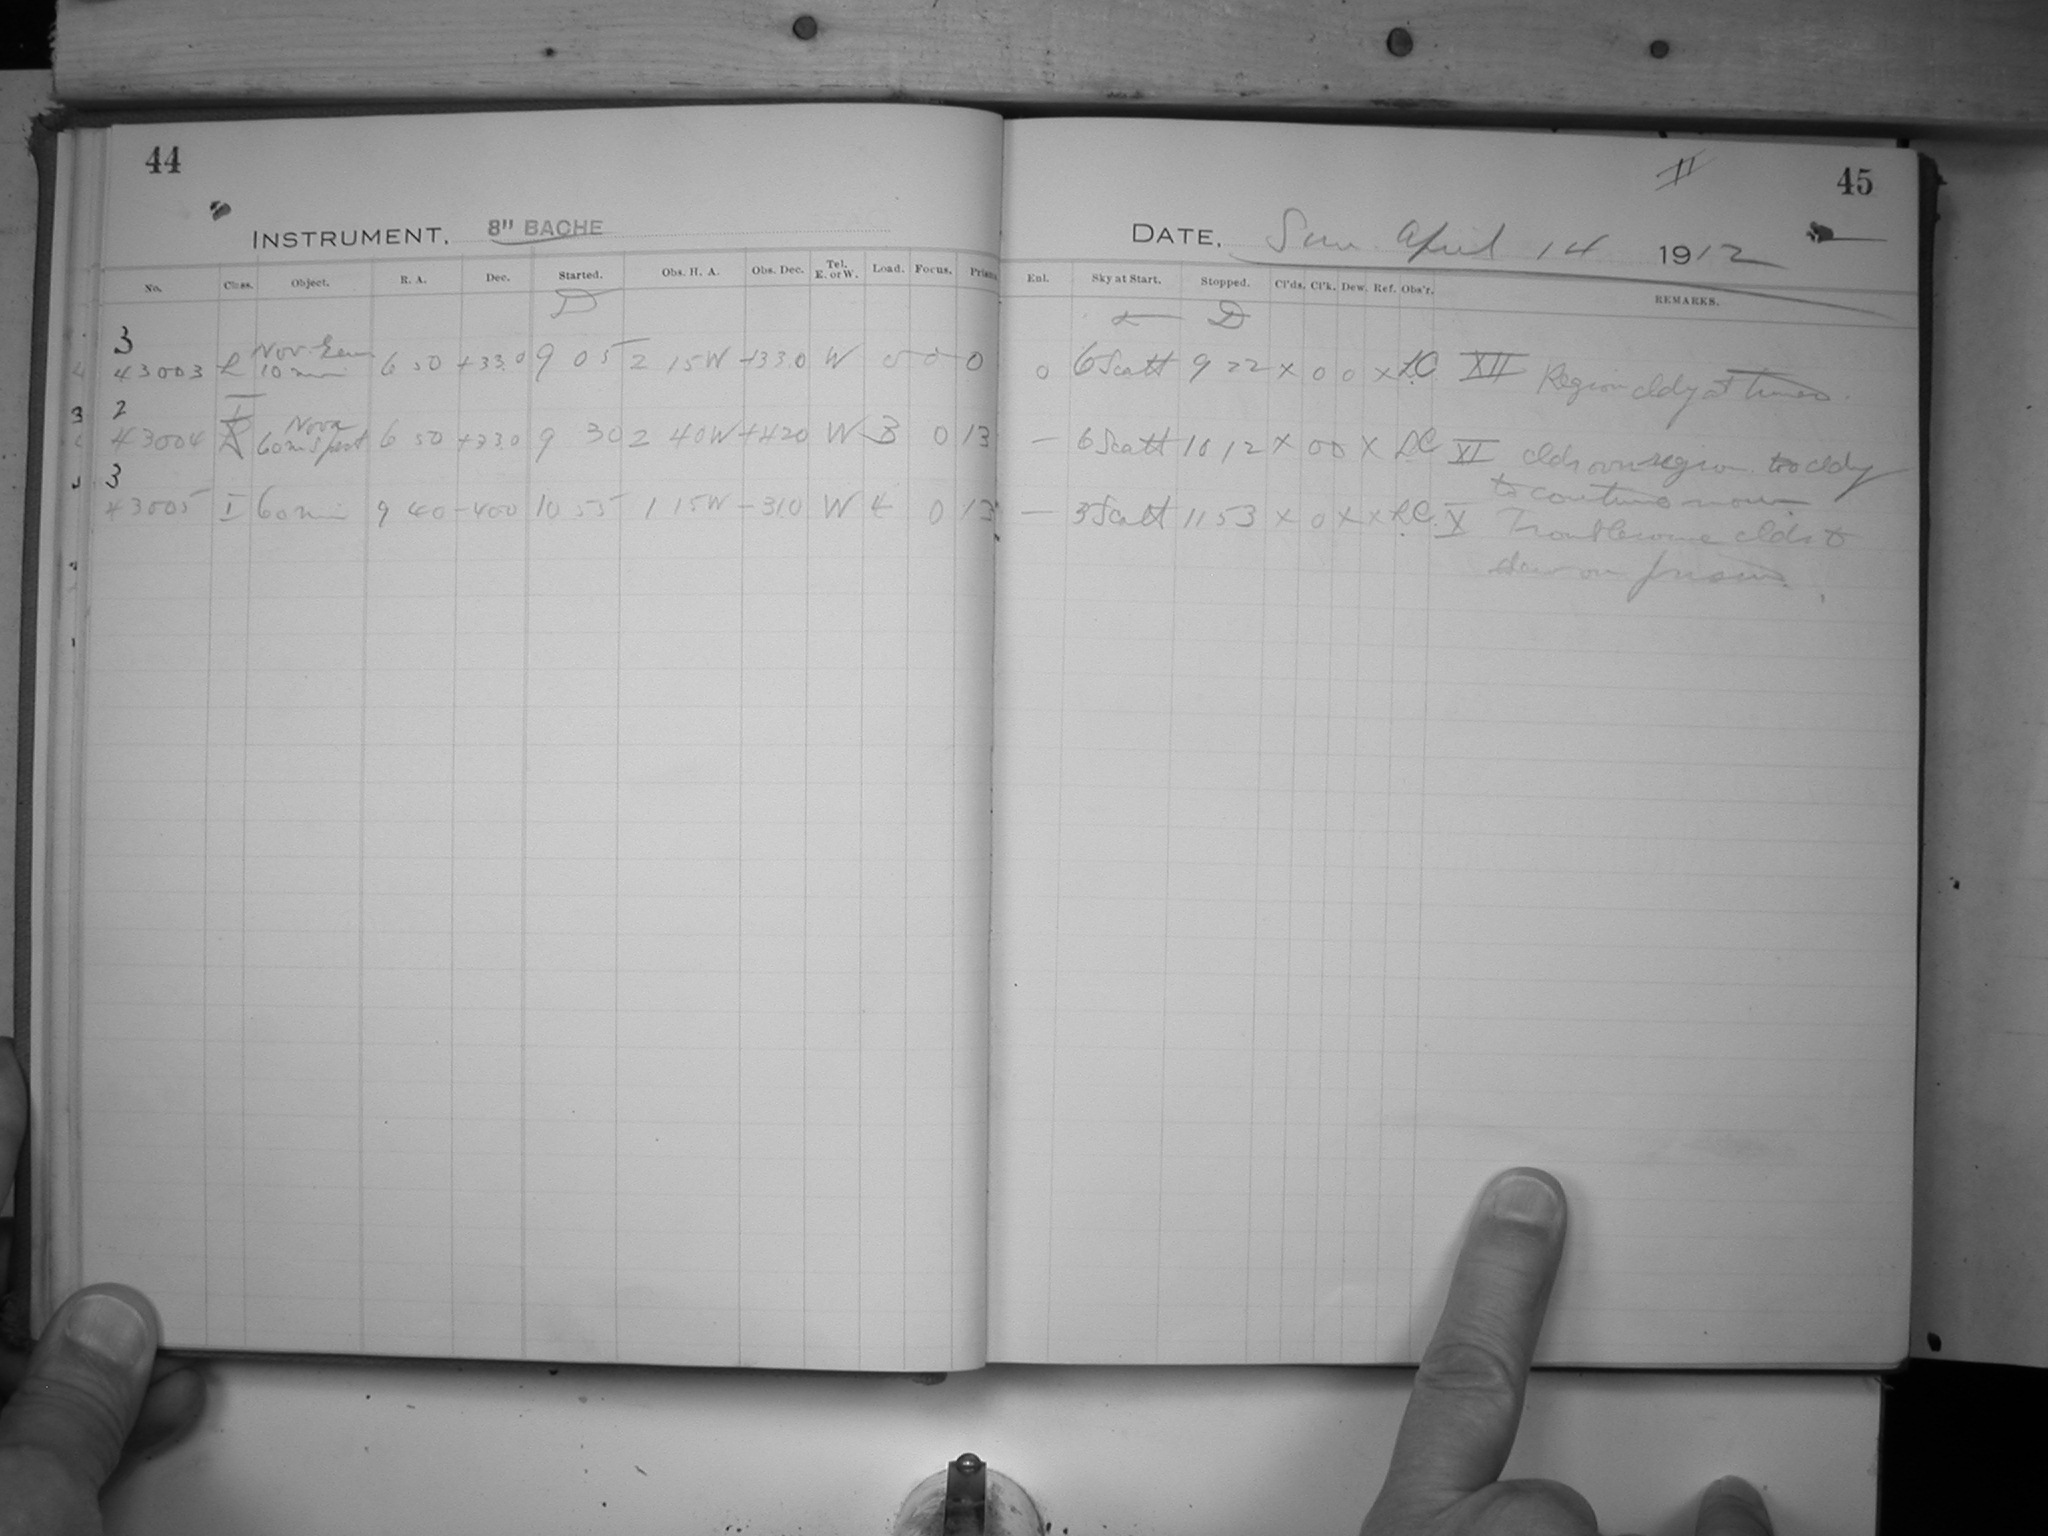 44
INSTRUMENT. 8" BACHE
No. Class. Object. R. A. Dec. Started. Obs. H. A. Obs. Dec. Tel. E. or W. Load. Focus. Prism
D
3
43003 L Nov. Gem 10 min 6 50 +33.0 9 05 2 15 W +33.0 W 0 0 0
2
43004 Nova 60 m Spect 6 50 +33.0 9 30 2 40 W +42.0 W B 0 13
3
43005 I 60 min 9 40 -40 0 10 55 1 15 W -31.0 W 4 0 13
II
45
DATE. Sun. April 14 1912
Enl. Sky at Start. Stopped. Cl'ds. Cl'k. Dew. Ref. Obs'r. REMARKS.
D
0 6 Scatt 9 22 X 0 0 X L.C. XII Region cldy at times.
— 6 Scatt 10 12 X 0 0 X L.C. XI clds over region too cldy
to continue now.
— 3 Scatt 11 53 X 0 X X L.C. X Troublesome clds &
dew on prism.